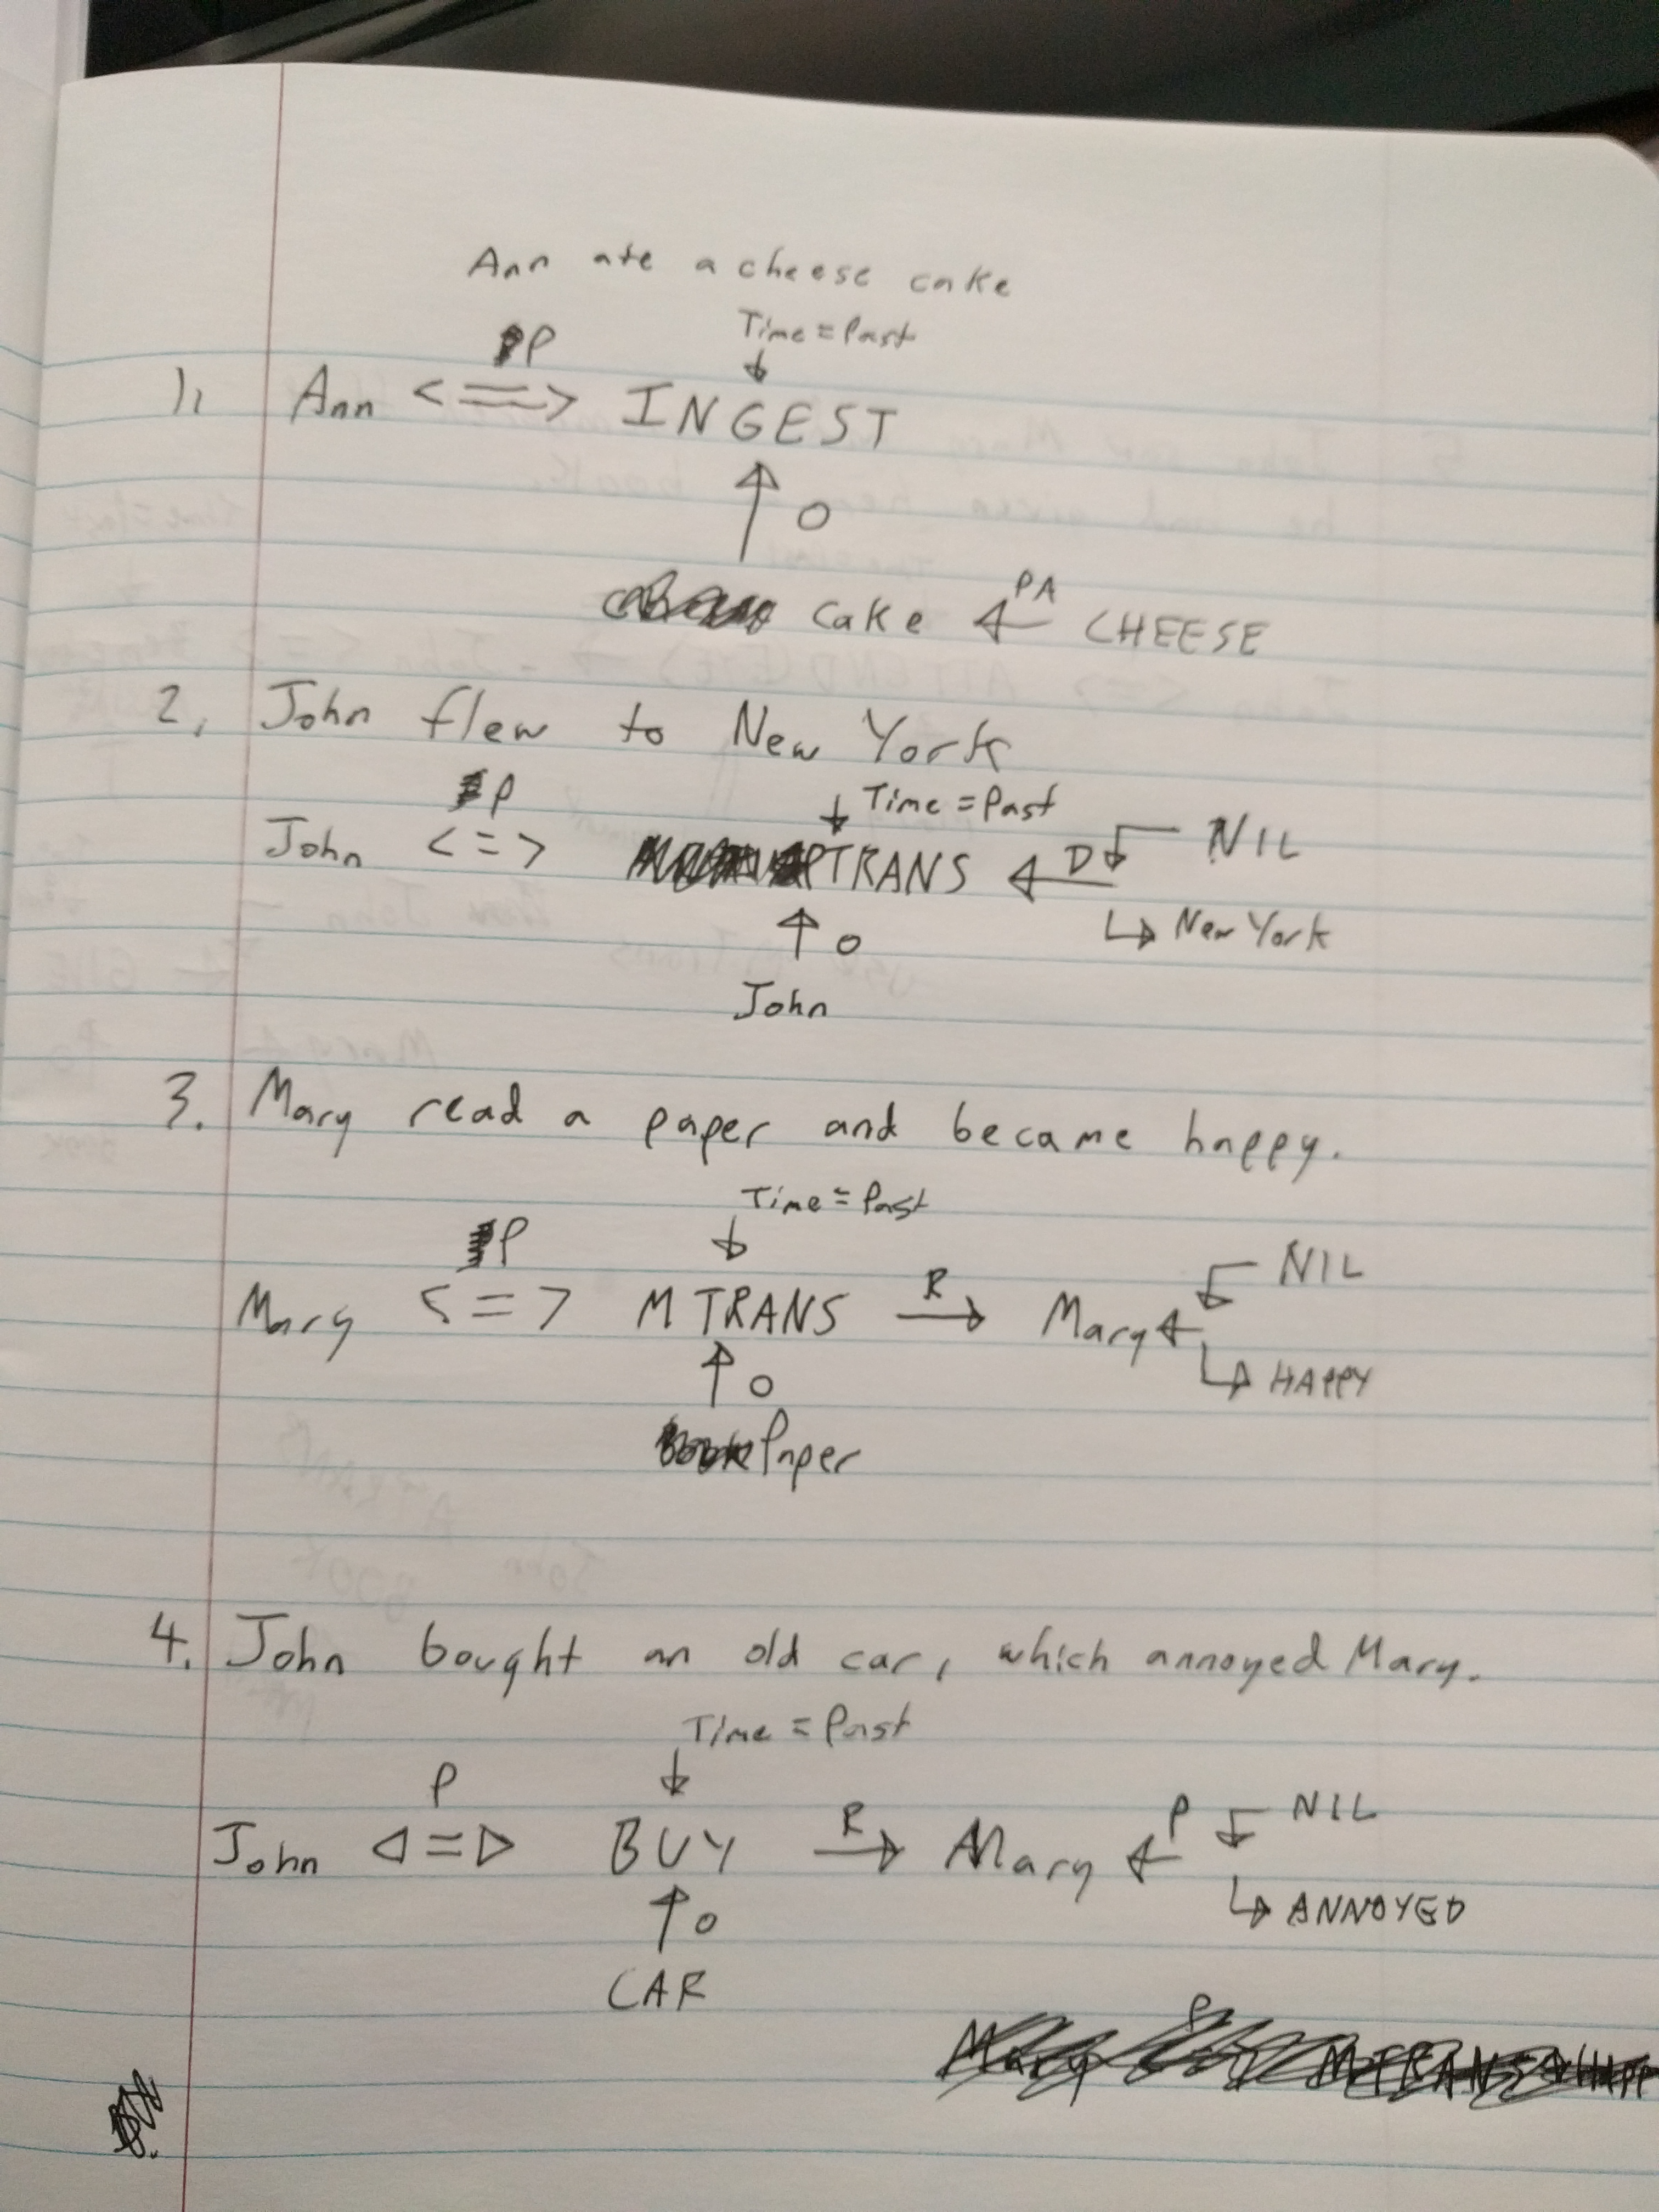 Ann ate a cheese cake
Time = Past
P
1. Ann <=> INGEST
↑ O
Cake ← PA CHEESE
2. John flew to New York
P
↓ Time = Past
John <=> PTRANS ← D NIL
↳ New York
↑ O
John
3. Mary read a paper and became happy.
Time = Past
P
Mary <=> MTRANS R → Mary ← NIL
↳ HAPPY
↑ O
Paper
4. John bought an old car, which annoyed Mary.
Time = Past
P
John <=> BUY R → Mary ← P NIL
↳ ANNOYED
↑ O
CAR